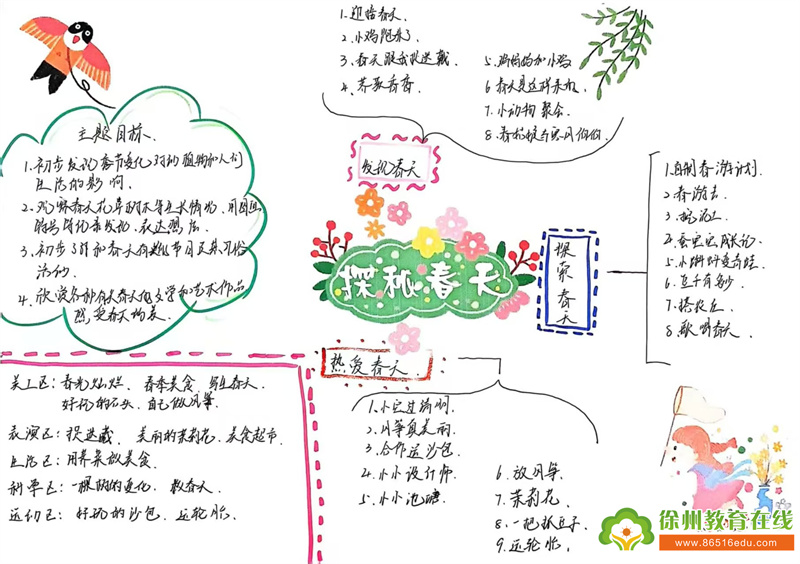 主题目标
1.初步发现季节变化对动植物和人们
生活的影响.
2.观察春天花草树木等生长情况,用图画
符号等记录发现,表达想法
3.初步了解和春天有关的节日及其习俗
活动
4.欣赏各种有关春天的文学和艺术作品
感受春天的美.
1.迎接春天.
2.小鸡跑来了
3.春天跟我捉迷藏
4.荠菜香香
5.鸡妈妈和小鸡
6春天是这样来的
7.小动物聚会
8.春姑娘与
发现春天
探秘春天
探索春天
1.自制春游计划.
2春游去
3
4.蚕宝宝成长记
5.小蝌蚪变青蛙
6.豆子有多少
7.
8.歌唱春天
热爱春天
1.小宝过
2.风筝真美丽
3.合作运沙包
4.小小设计师
5.小小池塘
6.放风筝
7.茉莉花
8.一把抓豆子
9.运轮胎
美工区:春光灿烂. 春季美食 写生春天.
好玩的石头. 自己做风筝
表演区:捉迷藏. 美丽的茉莉花.美食超市
生活区:用荠菜做美食
科学区:一颗的变化 数春天
运动区:好玩的沙包. 运轮胎.
徐州教育在线
www.86516edu.com